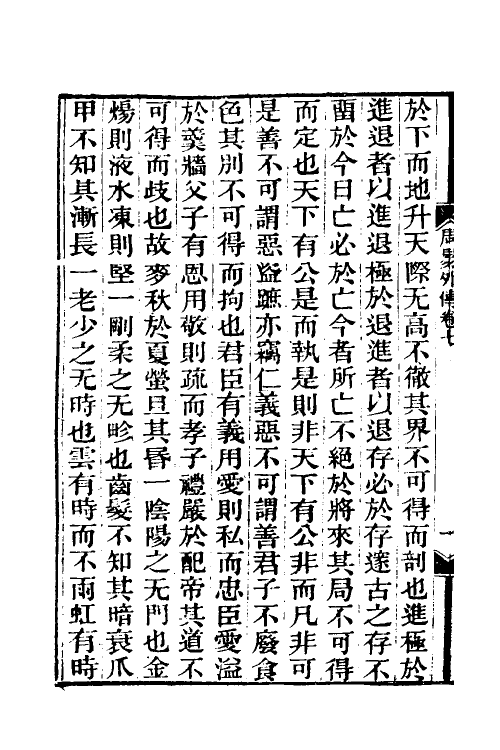 於下而地升天際无高不徹其界不可得而剖也進極於
進退者以進退極於退進者以退存必於存遂古之存不
畱於今日亡必於亡今者所亡不絕於將來其局不可得
而定也天下有公是而執是則非天下有公非而凡非可
是善不可謂惡盜蹠亦竊仁義惡不可謂善君子不廢食
色其別不可得而拘也君臣有義用愛則私而忠臣愛溢
於羹牆父子有恩用敬則疏而孝子禮嚴於配帝其道不
可得而歧也故麥秋於夏螢旦其昏一陰陽之无門也金
煬則液水凍則堅一剛柔之无畛也齒髮不知其暗衰爪
甲不知其漸長一老少之无時也雲有時而不雨虹有時
周易外傳卷七
一